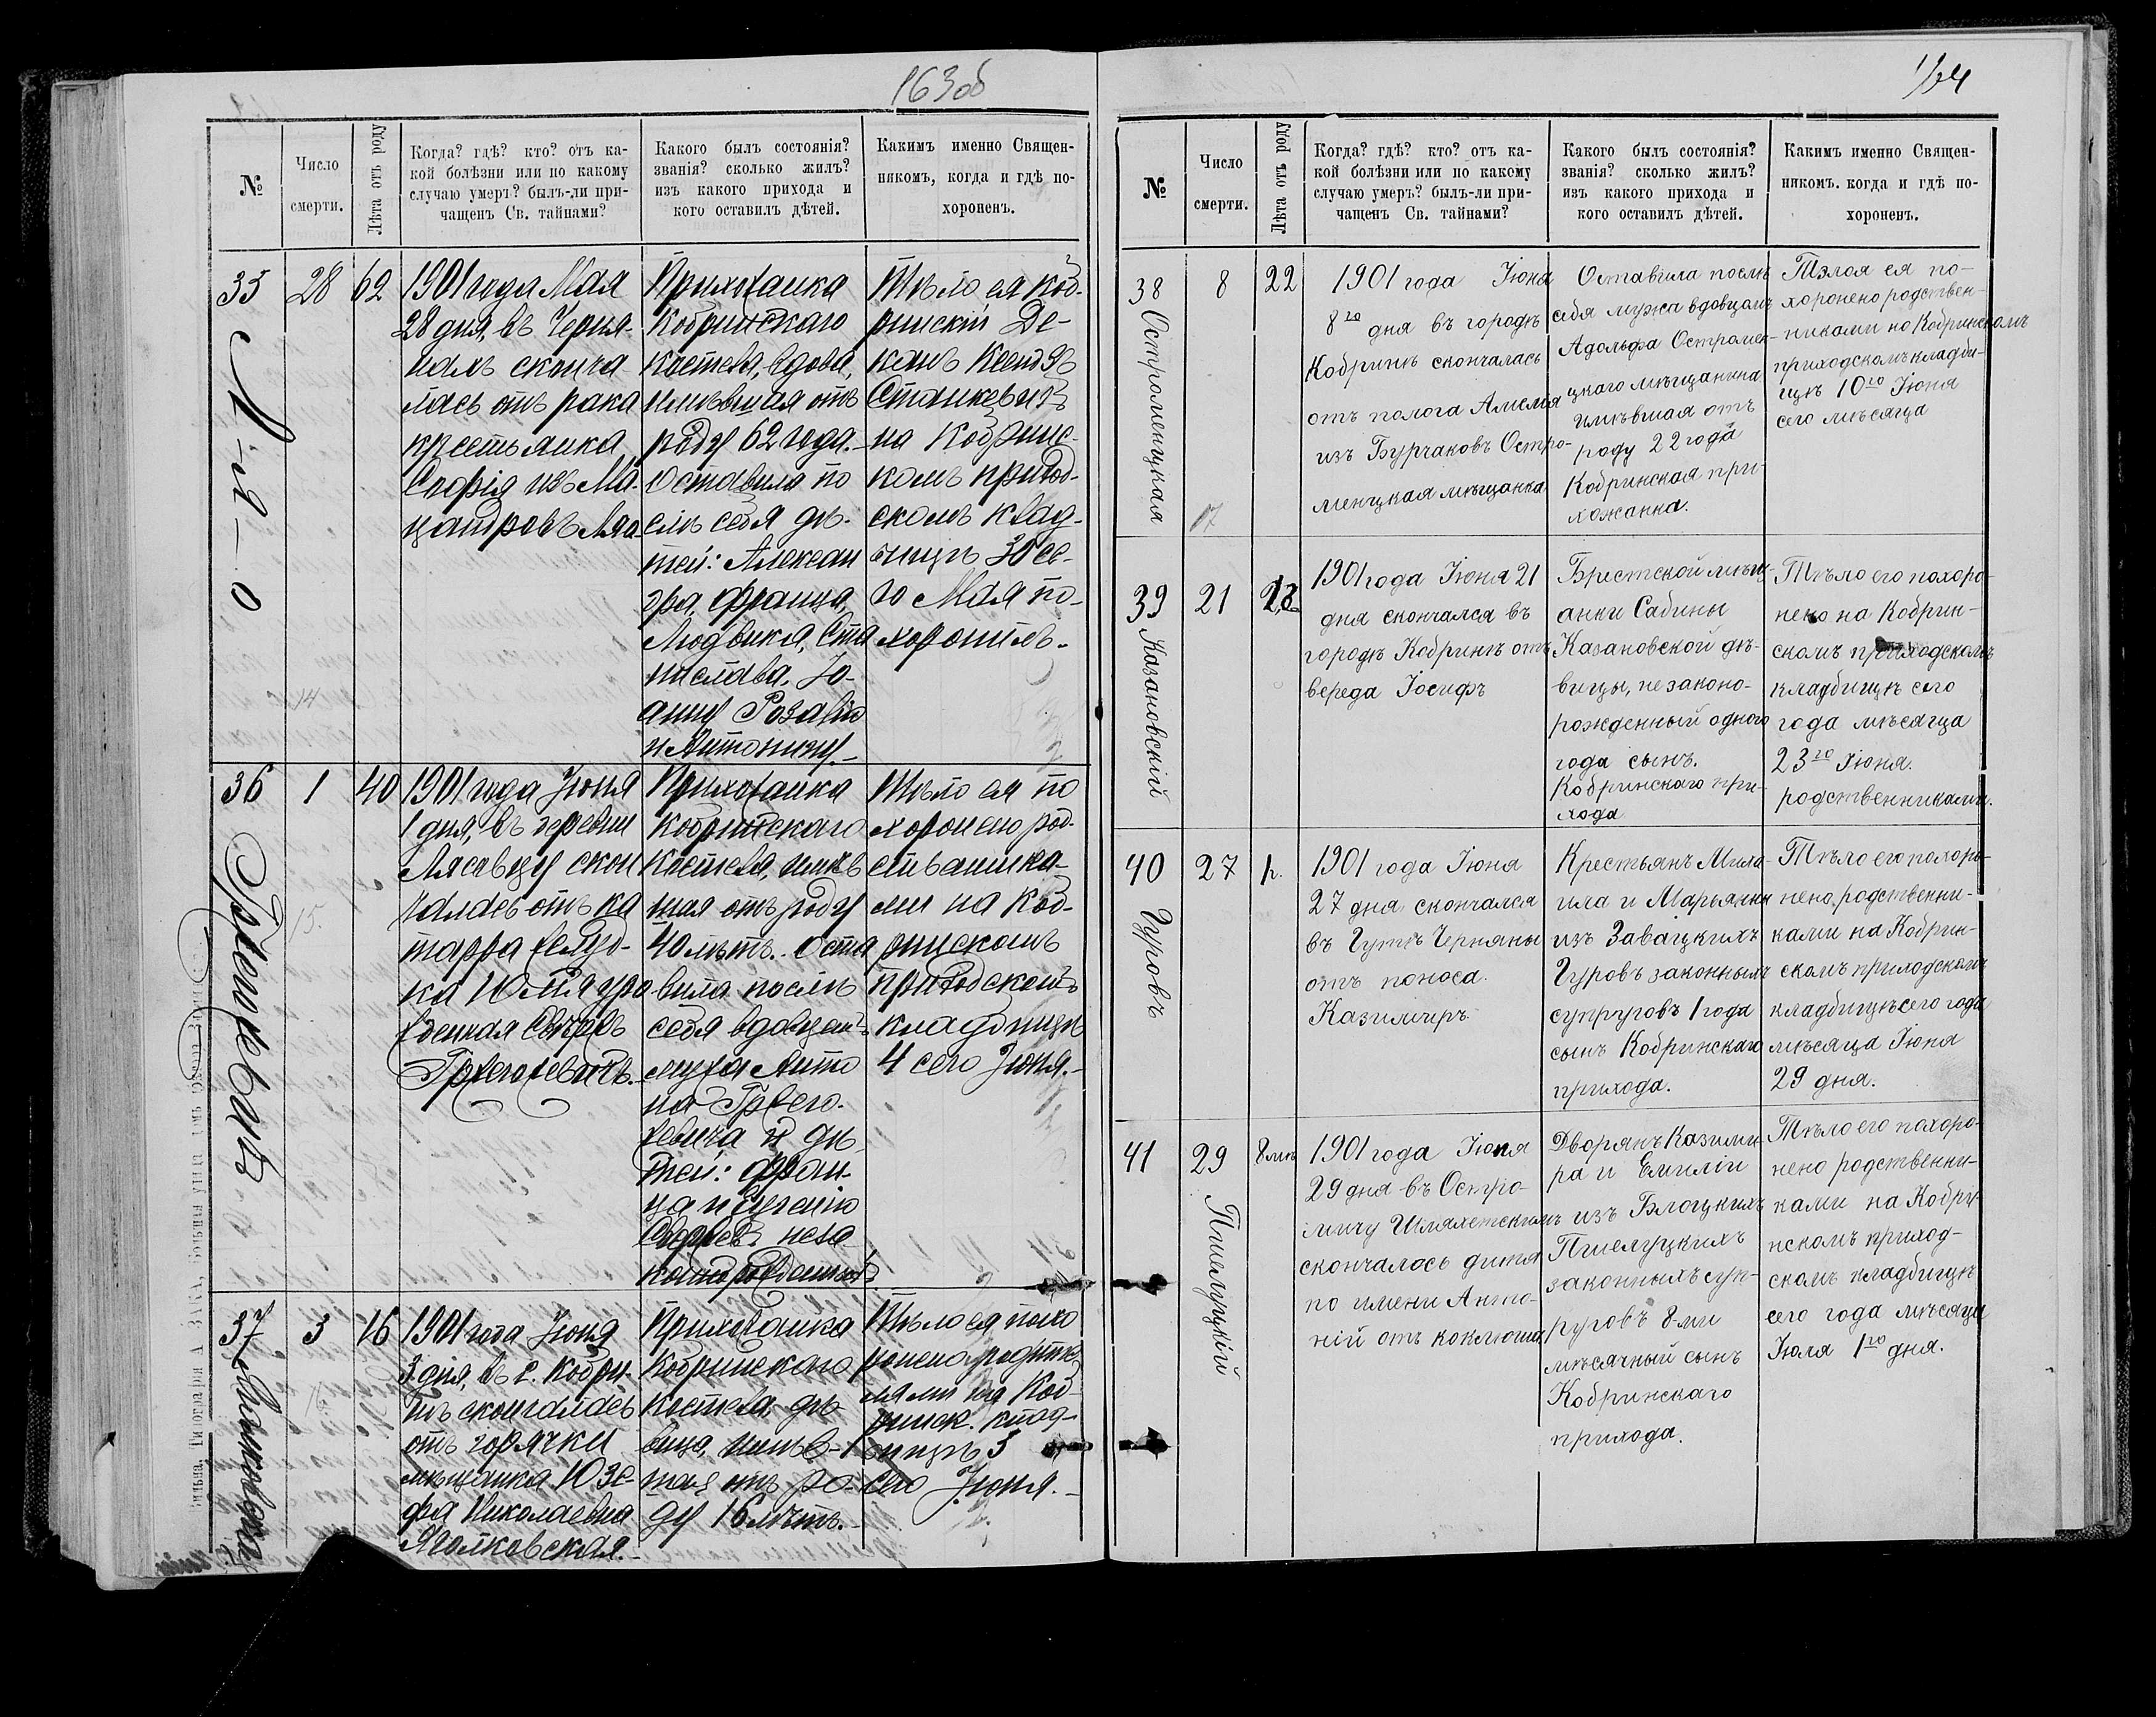 163 об
№
Число смерти.
Лѣта отъ роду
Когда? гдѣ? кто? отъ ка-
кой болѣзни или по какому
случаю умеръ? былъ-ли при-
чащенъ Св. тайнами?
Какого былъ состоянія?
званія? сколько жилъ?
изъ какого прихода и
кого оставилъ дѣтей.
Какимъ именно Священ-
никомъ, когда и гдѣ по-
хороненъ.
35
28
62
1901 года Мая
28 дня, въ Черня-
нахъ сконча
лась отъ рака
крестьянка
Софія изъ Ма-
Прихожанка
Кобринскаго
костела, вдова,
имѣвшая отъ
роду 62 года.
Оставила по
слѣ себя дѣ-
тей: Алексан
дра, Франца,
Людвика, Ста
нислава, Іо-
анну Розалію
и Антонину.
Тѣло ея Коб-
ринскій Де-
канъ Ксендзъ
Станкевичъ
на Кобрин-
комъ приход-
скомъ клад-
бищѣ 30 се-
го Мая по-
хоронилъ.
14
36
1
40
1901 года Іюня
1 дня, въ деревни
скон
чалась отъ ка
тарра желуд-
ка Юлія уро
жденная
Прихожанка
Кобринскаго
Костела, имѣв
шая отъ роду
40 лѣтъ. Оста
вила послѣ
себя вдовцемъ
мужа Анто
на
и дѣ-
тей: Фран-
ца и Евгенію
Тѣло ея по
хоронено род-
ственника-
ми на Коб-
ринскомъ
приходскомъ
кладбищѣ
4 сего Іюня.
15.
37
3
16
1901 года Іюня
3 дня, въ г. Кобри-
нѣ скончалась
отъ горячки
мѣщанка Юзе-
фа Николаевна
Яголковская.
Прихожанка
Кобринскаго
Костела, дѣ-
вица, имѣв-
шая отъ ро-
ду 16 лѣтъ.
Тѣло ея похо
ронено родите
лями на Коб-
ринск. клад-
бищѣ 5
сего Іюня.
16
164
№
Число смерти.
Лѣта отъ роду
Когда? гдѣ? кто? отъ ка-
кой болѣзни или по какому
случаю умеръ? былъ-ли при-
чащенъ Св. тайнами?
Какого былъ состоянія?
званія? сколько жилъ?
изъ какого прихода и
кого оставилъ дѣтей.
Какимъ именно Священ-
никомъ. когда и гдѣ по-
хороненъ.
38
Остроменцкая
8
22
1901 года Іюня
8го дня въ городѣ
Кобринѣ скончалась
отъ полога Амелія
изъ Бурчаковъ Остро-
менцкая мѣщанка
Оставила послѣ
себя мужа вдовцомъ
Адольфа Остромен-
цкаго мѣщанина
имѣвшая отъ
роду 22 года
Кобринская при-
хожанка.
Тѣлоя ея по-
хоронено родствен-
никами на Кобринскомъ
приходскомъ кладби-
щѣ 10го Іюня
сего мѣсяца
17
39
Казановскій
21
1901 года Іюня 21
дня скончался въ
городѣ Кобринѣ отъ
вереда Іосифъ
Брестской мѣщ-
анки Сабины
Казановской дѣ-
вицы, незаконо-
рожденный одного
года сынъ.
Кобринскаго при-
хода
Тѣло его похоро-
нено на Кобрин-
скомъ приходскомъ
кладбищѣ сего
года мѣсяца
23го Іюня.
родственниками.
40
Гуровъ
27
1.
1901 года Іюня
27 дня скончался
въ Гутѣ Черняны
отъ поноса.
Казимиръ
Крестьянъ Миха-
ила и Марьянны
изъ Завацкихъ
Гуровъ законныхъ
супруговъ 1 года
сынъ Кобринскаго
прихода.
Тѣло его похоро-
нено, родственни-
ками на Кобрин-
скомъ приходскомъ
кладбищѣ сего года
мѣсяца Іюня
29 дня.
41
Пшелуцкій
29
8 мѣ
1901 года Іюня
29 дня въ Остро-
мичу Шляхетскимъ
скончалось дитя
по имени Анто-
ній отъ коклюша
Дворянъ Казими
ра и Емиліи
изъ Блоцкихъ
Пшелуцкихъ
законныхъ суп-
руговъ 8-ми
мѣсячный сынъ
Кобринскаго
прихода.
Тѣло его похоро-
нено родственни-
ками на Кобри-
нскомъ приход-
скомъ кладбищѣ
сего года мѣсяца
Іюля 1го дня.